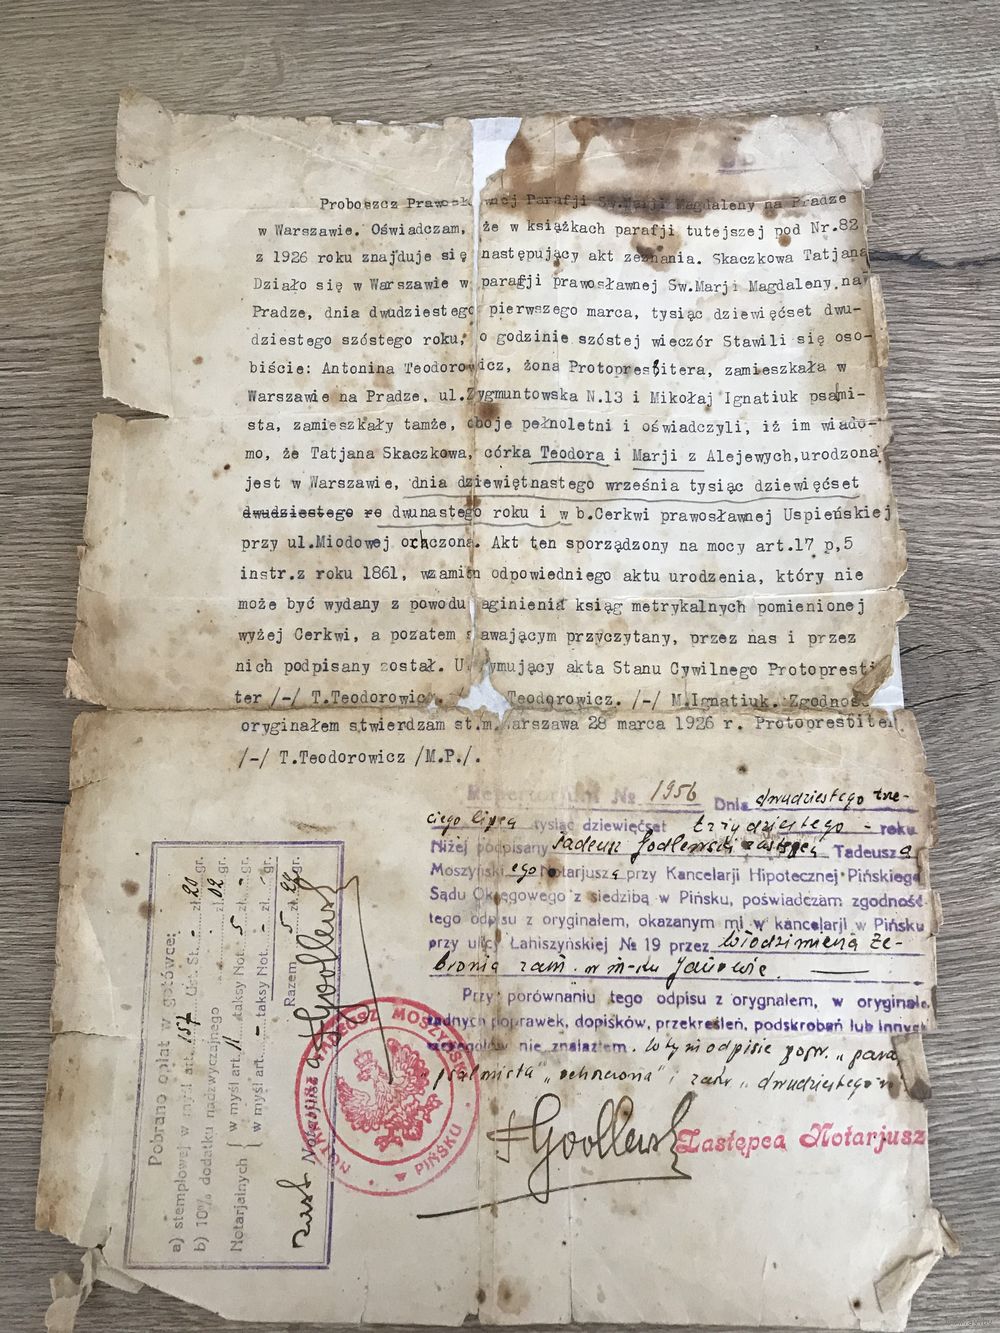 Proboszcz Prawosł wnej Parafji Sw.Marji Magdaleny na Pradze
w Warszawie. Oświadczam, że w książkach parafji tutejszej pod Nr.82
z 1926 roku znajduje się następujący akt zeznania. Skaczkowa Tatjana
Działo się w Warszawie w parafji prawosławnej Sw.Marji Magdaleny,na
Pradze, dnia dwudziestego pierwszego marca, tysiąc dziewięćset dwu-
dziestego szóstego roku, o godzinie szóstej wieczór Stawili się oso-
biście: Antonina Teodorowicz, żona Protopresbitera, zamieszkała w
Warszawie na Pradze, ul.Zygmuntowska N.13 i Mikołaj Ignatiuk psalmi-
sta, zamieszkały tamże, oboje pełnoletni i oświadczyli, iż im wiado-
mo, że Tatjana Skaczkowa, córka Teodora i Marji z Alejewych,urodzona
jest w Warszawie, dnia dziewiętnastego września tysiąc dziewięćset
dwudziestego ro dwunastego roku i w b.Cerkwi prawosławnej Uspieńskiej
przy ul.Miodowej ochczona. Akt ten sporządzony na mocy art.17 p,5
instr.z roku 1861, wzamian odpowiedniego aktu urodzenia, który nie
może być wydany z powodu aginienia ksiąg metrykalnych pomienionej
wyżej Cerkwi, a pozatem s awającym przyczytany, przez nas i przez
nich podpisany został. U ymujący akta Stanu Cywilnego Protopresti
ter /-/ T.Teodorowicz. Teodorowicz. /-/ M.Ignatiuk. Zgodność
oryginałem stwierdzam st.m.Warszawa 28 marca 1926 r. Protopresbiter
/-/ T.Teodorowicz /M.P./.
Repertorium № 1956 Dnia dwudziestego trze-
ciego lipca tysiąc dziewięćset trzydziestego - roku
Niżej podpisany Tadeusz Godlewski zastępca Tadeusza
Moszyńskiego Notarjusza przy Kancelarji Hipotecznej Pińskiego
Sądu Okręgowego z siedzibą w Pińsku, poświadczam zgodność
tego odpisu z oryginałem, okazanym mi w kancelarji w Pińsku
przy ulicy Łahiszyńskiej № 19 przez Włodzimierza Że-
bronia zam. w m-ku Janowie.
Przy porównaniu tego odpisu z orygnałem, w oryginale
żadnych poprawek, dopisków, przekreśleń, podskrobań lub innych
szczegółów nie znalazłem. W tym odpisie popr. „para
„psalmista" „ochczona" i zakr „dwudziestego ro
Zastępca Notarjusz
Pobrano opłat w gotówce:
a) stemplowej w myśl art. 157 Ust. St. - zł. 20 gr.
b) 10% dodatku nadzwyczajnego - zł. 02 gr.
Notarjalnych { w myśl art. 11 taksy Not. 5 zł. - gr.
w myśl art. - taksy Not. - zł. - gr.
Razem 5 zł. 22 gr.
zast. Notarjusz
NOTARJUSZ TADEUSZ MOSZYŃSKI
W PIŃSKU